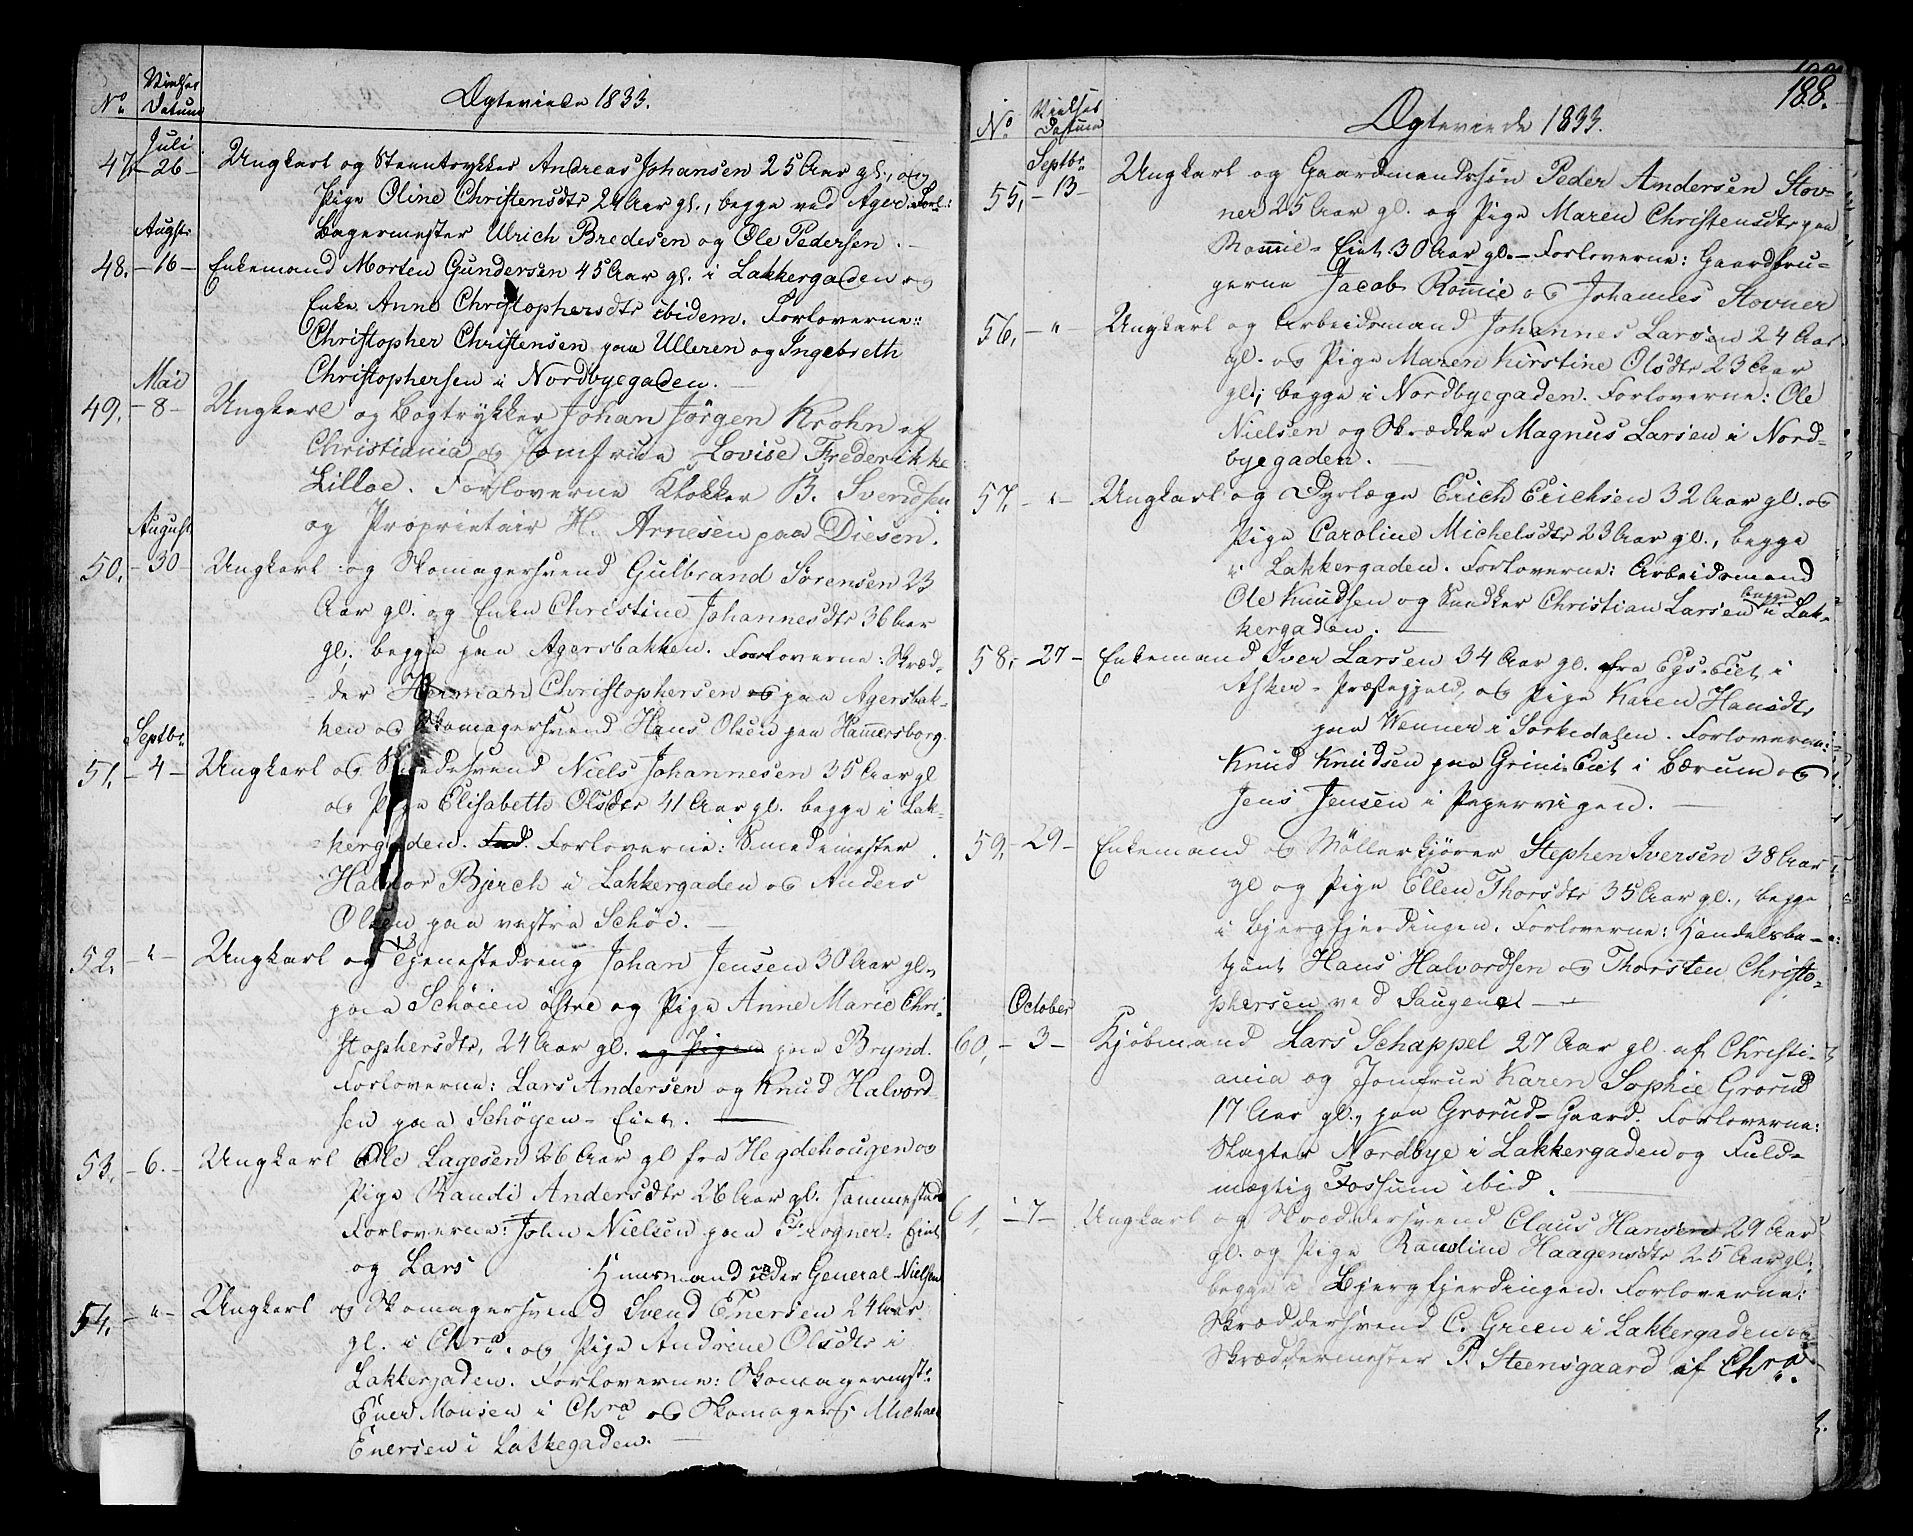 No Vielses Datum
Ægteviede 1833.
Juli
47. - 26 - Ungkarl og Steentrykker Andreas Johansen 25 Aar gl., og
Pige Oline Christensdtr 24 Aar gl., begge ved Ager. Forl:
Bagermester Ulrich Bredesen og Ole Pedersen. -
Augst:
48. - 16 - Enkemand Morten Gundersen 45 Aar gl. i Lakkergaden og
Enke Anne Christophersdtr ibidem. Forloverne:
Christopher Christensen paa Ulleren og Ingebreth
Christophersen i Nordbyegaden. -
Mai
49. - 8 - Ungkarl og Bogtrykker Johan Jörgen Krohn af
Christiania og Jomfrue Lovise Frederikke
Lilloe. Forloverne Klokker B. Svendsen
og Proprietair H. Arnesen paa Disen.
August
50. - 30 - Ungkarl og Skomagersvend Gulbrand Sörensen 23
Aar gl. og Enke Christine Johannesdtr 36 Aar
gl; begge paa Agersbakken. Forloverne: Skræd-
der Herman Christophersen og paa Agersbak-
ken og Skomagersvend Hans Olsen paa Hammersborg.
Septbr.
51. - 4 - Ungkarl og Smedesvend Niels Johannesen 35 Aar gl
og Pige Elisabeth Olsdtr 41 Aar gl. begge i Lak-
kergaden. Forloverne: Smedemester
Halvor Bjerch i Lakkergaden og Anders
Olsen paa vestre Schöe. -
52. - " - Ungkarl og Tjenestedreng Johan Jensen 30 Aar gl.
paa Schöien östre og Pige Anne Marie Chri-
stophersdtr, 24 Aar gl. og Pigen paa Brynd.
Forloverne: Lars Andersen og Knud Halvord-
sen paa Schöyen-Eiet. -
53. - 6. - Ungkarl Ole Lagesen 26 Aar gl fra Hegdehougen og
Pige Randi Andersdtr 26 Aar gl. sammesteds
Forloverne: John Nielsen paa Frogner-Eiet
og Lars Huusmand under General Nielsen
54. - " - Ungkarl og Skomagersvend Svend Enersen 24 Aar
gl. i Chra. og Pige Andrine Olsdtr i
Lakkergaden. Forloverne: Skomagermstr.
Ener Monsen i Chra og Skomagers: Michael
Enersen i Lakkegaden. -
188.
No Vielses Datum
Ægteviede 1833.
Septbr.
55. - 13 - Ungkarl og Gaardmandssön Peder Andersen Stov-
ner 25 Aar gl. og Pige Maren Christensdtr paa
Rommie-Eiet 30 Aar gl. - Forloverne: Gaardbru-
gerne Jacob Rommie og Johannes Stovner
56. - " Ungkarl og Arbeidsmand Johannes Larsen 24 Aar
gl. og Pige Maren Kirstine Olsdtr 23 Aar
gl; begge i Nordbyegaden. Forloverne: Ole
Nielsen og Skrædder Magnus Larsen i Nord-
byegaden. -
57. - " - Ungkarl og Dyrlæge Erich Erichsen 32 Aar gl. og
Pige Caroline Michelsdtr 23 Aar gl., begge
i Lakkergaden. Forloverne: Arbeidsmand
Ole Knudsen og Snedker Christian Larsen begge i Lak-
kergaden. -
58. - 27 - Enkemand Iver Larsen 34 Aar gl. fra Egs-Eiet i
Asker-Præstegjeld, og Pige Karen Hansdtr
paa Wenner i Sörkedalen. Forloverne:
Knud Knudsen paa Grini-Eiet i Bærum og
Jens Jensen i Pipervigen. -
59. - 29 - Enkemand og Möllerkjörer Stephen Iversen 38 Aar
gl og Pige Ellen Thorsdtr 35 Aar gl., begge
i Bjergfjerdingen. Forloverne: Handelsbe-
tjent Hans Halvordsen og Thorsten Christo-
phersen ved Saugene -
October
60. - 3 - Kjöbmand Lars Schappel 27 Aar gl. af Christi-
ania og Jomfrue Karen Sophie Grorud
17 Aar gl., paa Grorud-Gaard. Forloverne:
Slagter Nordbye i Lakkergaden og Fuld-
mægtig Fossum ibid.
61. - 7 - Ungkarl og Skræddersvend Claus Hansen 29 Aar
gl. og Pige Randine Haagensdtr 25 Aar gl:
begge i Bjergfjerdingen. Forloverne:
Skræddersvend C. Green i Lakkergaden og
Skræddermester P. Steensgaard af Chra.